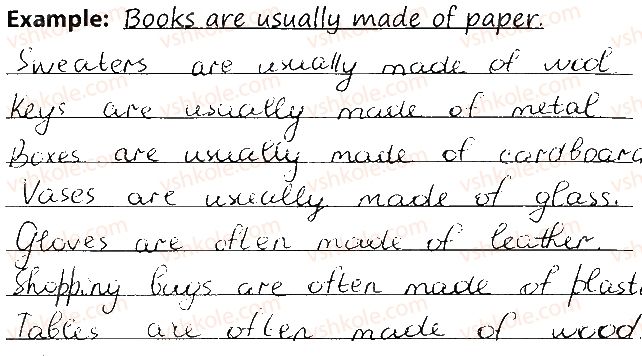 Example: Books are usually made of paper.
Sweaters are usually made of wool
Keys are usually made of metal
Boxes are usually made of cardboard
Vases are usually made of glass.
Gloves are often made of leather.
Shopping bags are often made of plasti
Tables are often made of wood